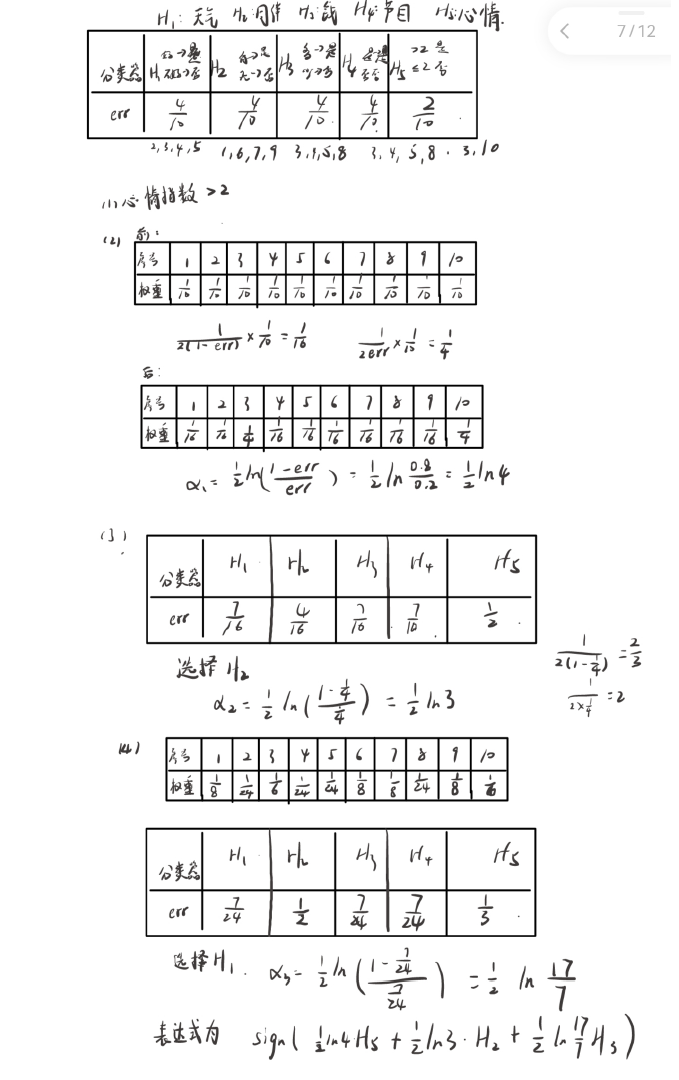 H₁: 天气 H₂: 同伴 H₃: 钱 H₄: 节目 H₅: 心情
7/12
分类器 H₁ 不好→否 H₂ 有→是 无→否 H₃ 多→是 少→否 H₄ H₅ >2 是 ≤2 否
err 4/10 4/10 4/10 4/10 2/10
2,3,4,5 1,6,7,9 3,4,5,8 3,4,5,8. 3,10
(1) 心情指数 >2
(2) 前:
序号 1 2 3 4 5 6 7 8 9 10
权重 1/10 1/10 1/10 1/10 1/10 1/10 1/10 1/10 1/10 1/10
1/(2(1-err)) × 1/10 = 1/16 1/(2err) × 1/10 = 1/4
后:
序号 1 2 3 4 5 6 7 8 9 10
权重 1/16 1/16 1/4 1/16 1/16 1/16 1/16 1/16 1/16 1/4
α₁ = 1/2 ln((1-err)/err) = 1/2 ln 0.8/0.2 = 1/2 ln4
(3)
分类器 H₁ H₂ H₃ H₄ H₅
err 7/16 4/16 7/10 7/10 1/2
选择 H₂
α₂ = 1/2 ln((1-1/4)/(1/4)) = 1/2 ln3
1/(2(1-1/4)) = 2/3
1/(2×1/4) = 2
(4)
序号 1 2 3 4 5 6 7 8 9 10
权重 1/8 1/24 1/6 1/24 1/24 1/8 1/8 1/24 1/8 1/6
分类器 H₁ H₂ H₃ H₄ H₅
err 7/24 1/2 7/24 7/24 1/3
选择 H₁. α₃ = 1/2 ln((1-7/24)/(7/24)) = 1/2 ln 17/7
表达式为 sign( 1/2 ln4 H₅ + 1/2 ln3 · H₂ + 1/2 ln 17/7 H₃ )